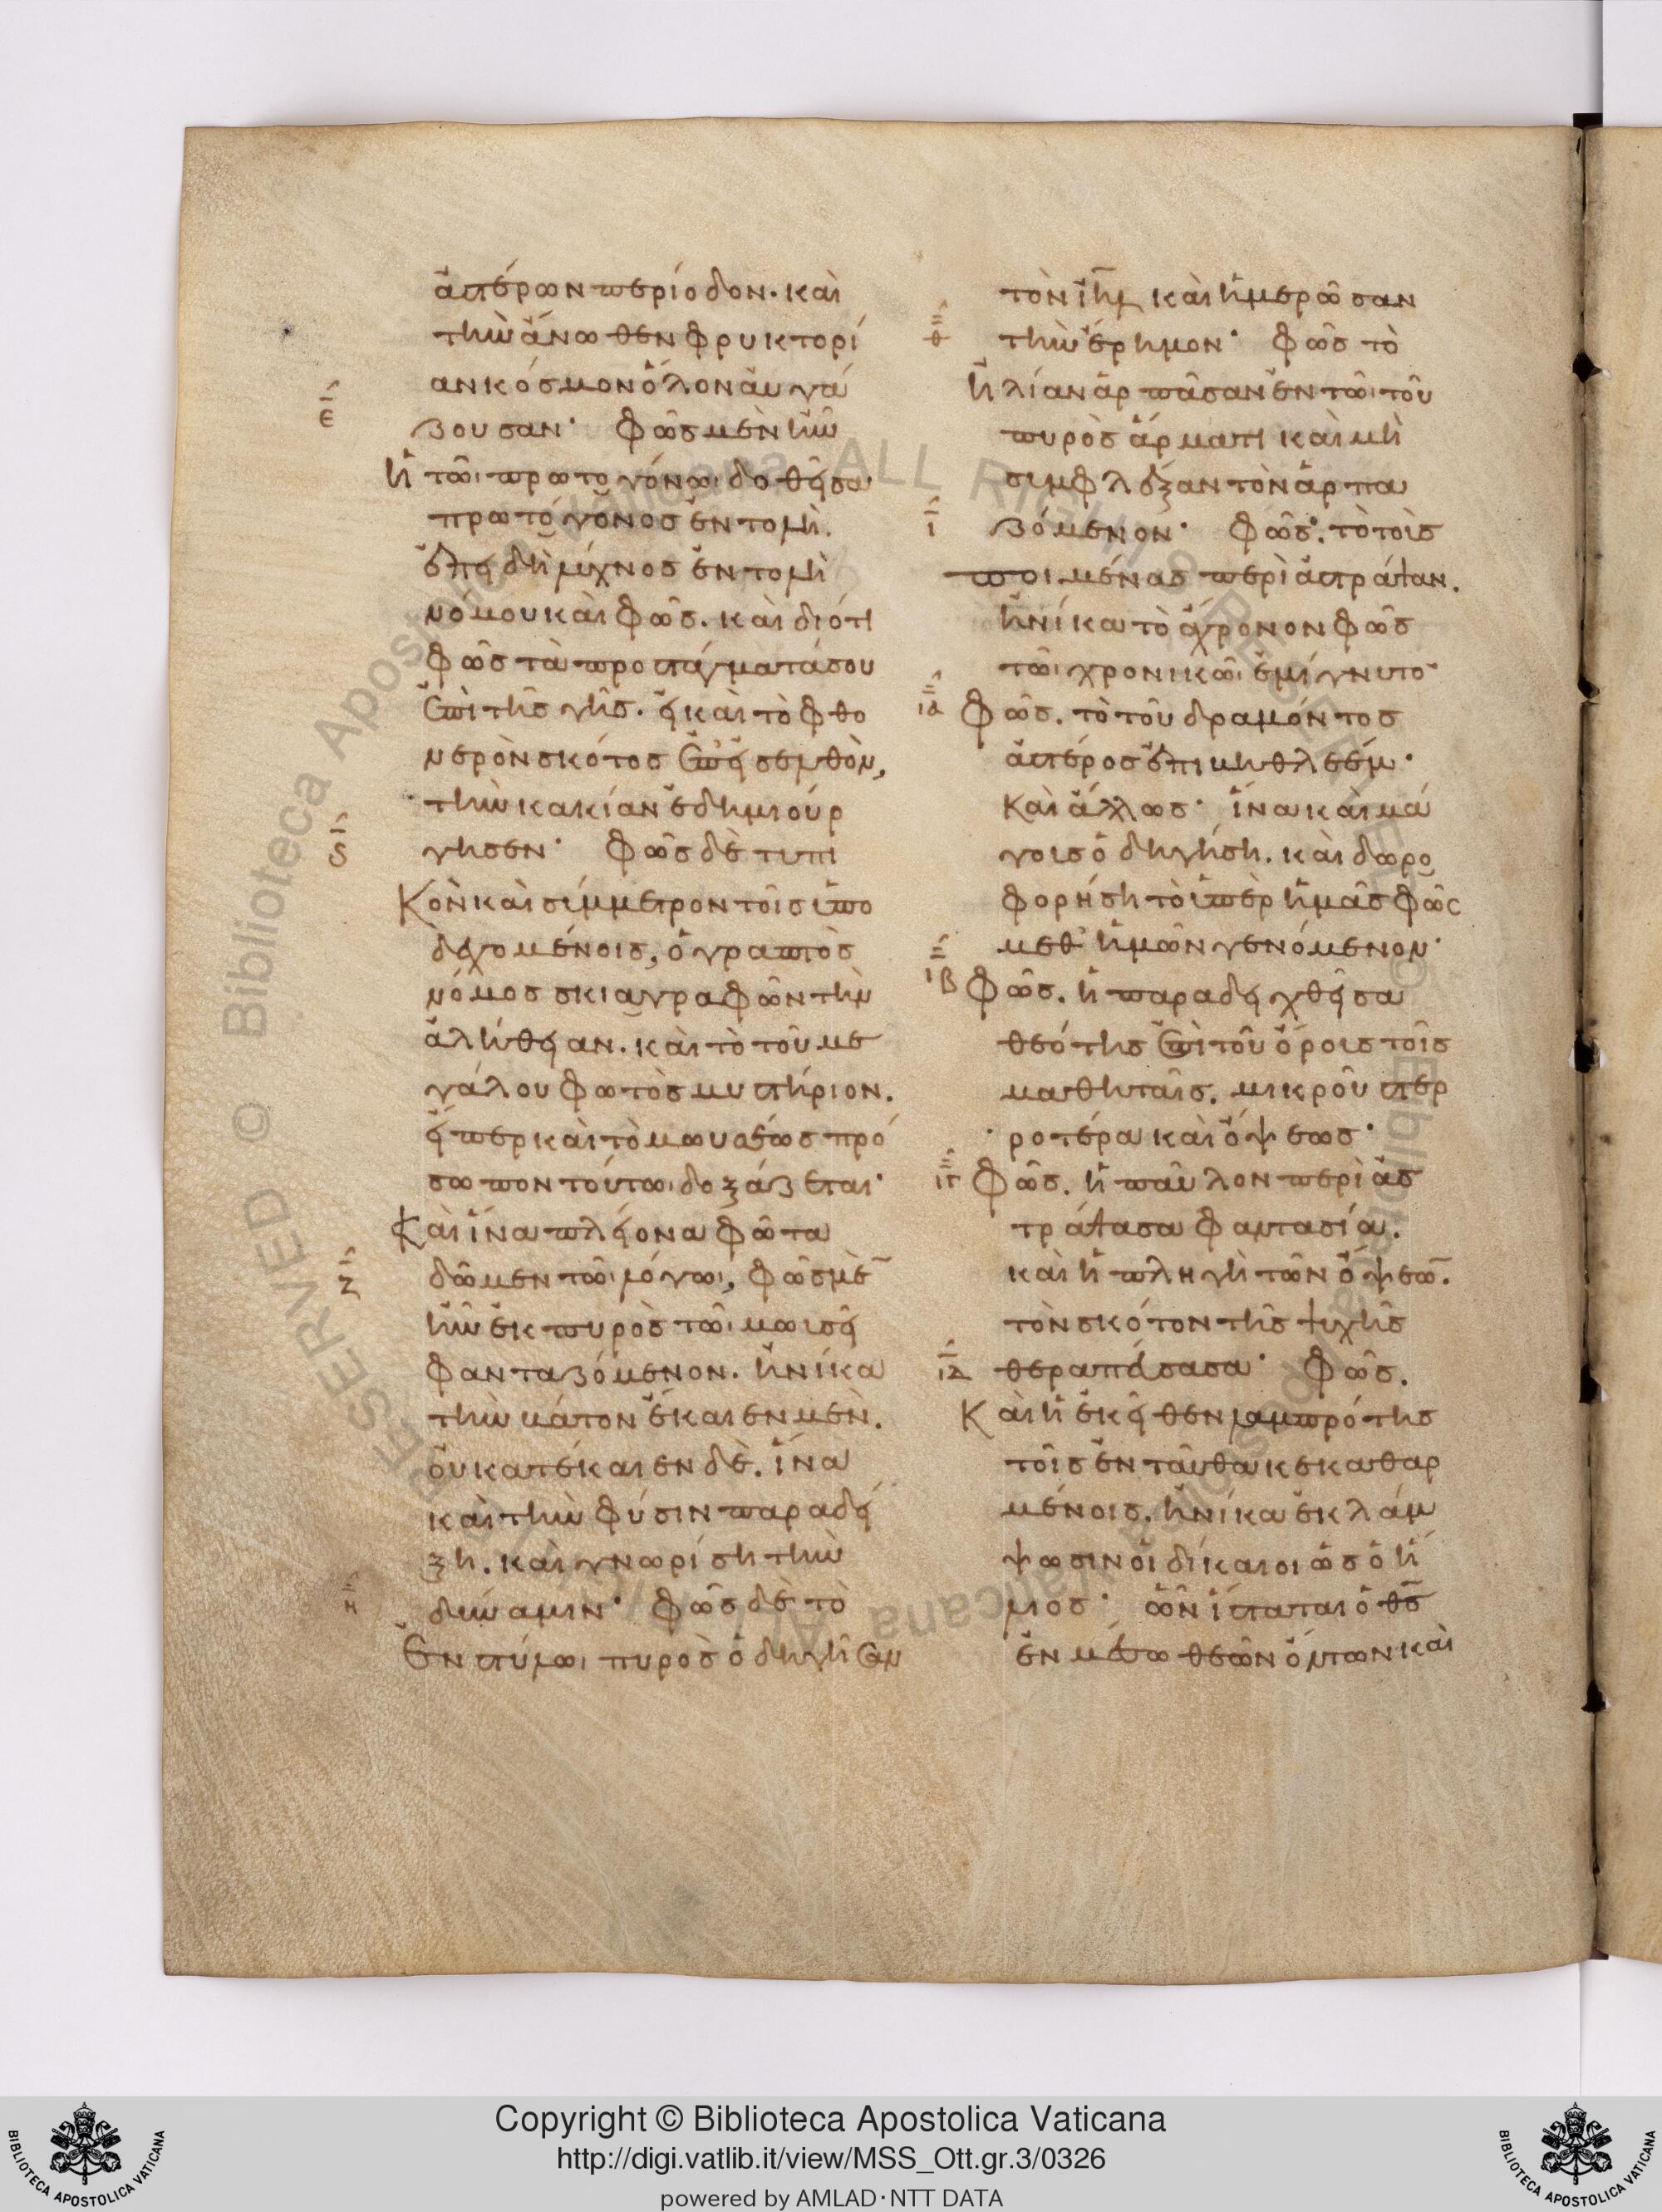 ἀστέρων περίοδον. καὶ
τὴν ἄνωθεν φρυκτορί
αν κόσμον ὅλον αὐγά
ε
ζουσαν· φῶς μὲν ἦν
ἡ τῶι πρωτογόνωι δοθεῖσα
πρωτόγονος ἐντολὴ.
ἐπειδὴ λύχνος ἐντολὴ
νόμου καὶ φῶς. καὶ διότι
φῶς τὰ προστάγματά σου
ἐπὶ τῆς γῆς. εἰ καὶ τὸ φθο
νερὸν σκότος ἐπεισελθὸν,
τὴν κακίαν ἐδημιούρ
ς
γησεν· φῶς δὲ τυπι
κὸν καὶ σύμμετρον τοῖς ὑπο
δεχομένοις, ὁ γραπτὸς
νόμος σκιαγραφῶν τὴν
ἀλήθειαν. καὶ τὸ τοῦ με
γάλου φωτὸς μυστήριον.
εἴπερ καὶ τὸ μωυσέως πρό
σωπον τούτωι δοξάζεται·
καὶ ἵνα πλείονα φῶτα
ζ
δῶμεν τῶι λόγωι, φῶς μὲ̄
ἦν ἐκ πυρὸς τῶι μωισεῖ
φανταζόμενον. ἡνίκα
τὴν βάτον ἔκαιεν μὲν.
οὐ κατέκαιεν δὲ. ἵνα
καὶ τὴν φύσιν παραδεί
ξη. καὶ γνωρίση τὴν
η
δύναμιν· φῶς δὲ τὸ
ἐν στύλωι πυρὸς ὁδηγῆσαν
τὸν ἰη̄λ καὶ ἡμερῶσαν
θ
τὴν ἔρημον· φῶς τὸ
ἡλίαν ἁρπᾶσαν ἐν τῶι τοῦ
πυρὸς ἅρματι καὶ μὴ
συμφλέξαν τὸν ἁρπα
ι
ζόμενον· φῶς. τὸ τοὺς
ποιμένας περὶ ἀστράψαν.
ἡνίκα τὸ ἄχρονον φῶς
τῶι χρονικῶι ἐμίγνυτο·
ια
φῶς. τὸ τοῦ δραμόντος
ἀστέρος ἐπι βηθλεέμ·
καὶ ἄλλως· ἵνα καὶ μά
γοις ὁδηγήση. καὶ δωρο
φορήση τὸ ὑπὲρ ἡμᾶς φῶς
μεθ' ἡμῶν γενόμενον·
ιβ
φῶς. ἡ παραδειχθεῖσα
θεότης ἐπὶ τοῦ ὄρους τοῖς
μαθηταῖς. μικροῦ στερ
ροτέρα καὶ ὄψεως·
ιγ
φῶς. ἡ παῦλον περὶ ἀσ
τράψασα φαντασία.
καὶ ἡ πληγὴ τῶν ὄψεω̄.
τὸν σκότον τῆς ψυχῆς
ιδ
θεραπεύσασα· φῶς.
καὶ ἡ ἐκεῖθεν λαμπρότης
τοῖς ἐνταῦθα κεκαθαρ
μένοις. ἡνίκα ἐκλάμ
ψωσιν οἱ δίκαιοι ὡς ὁ ἥ
λιος· ὧν ἵσταται ὁ θ̄ς̄
ἐν μέσω θεῶν ὄντων καὶ
Copyright © Biblioteca Apostolica Vaticana
http://digi.vatlib.it/view/MSS_Ott.gr.3/0326
powered by AMLAD·NTT DATA
BIBLIOTECA APOSTOLICA VATICANA
BIBLIOTECA APOSTOLICA VATICANA